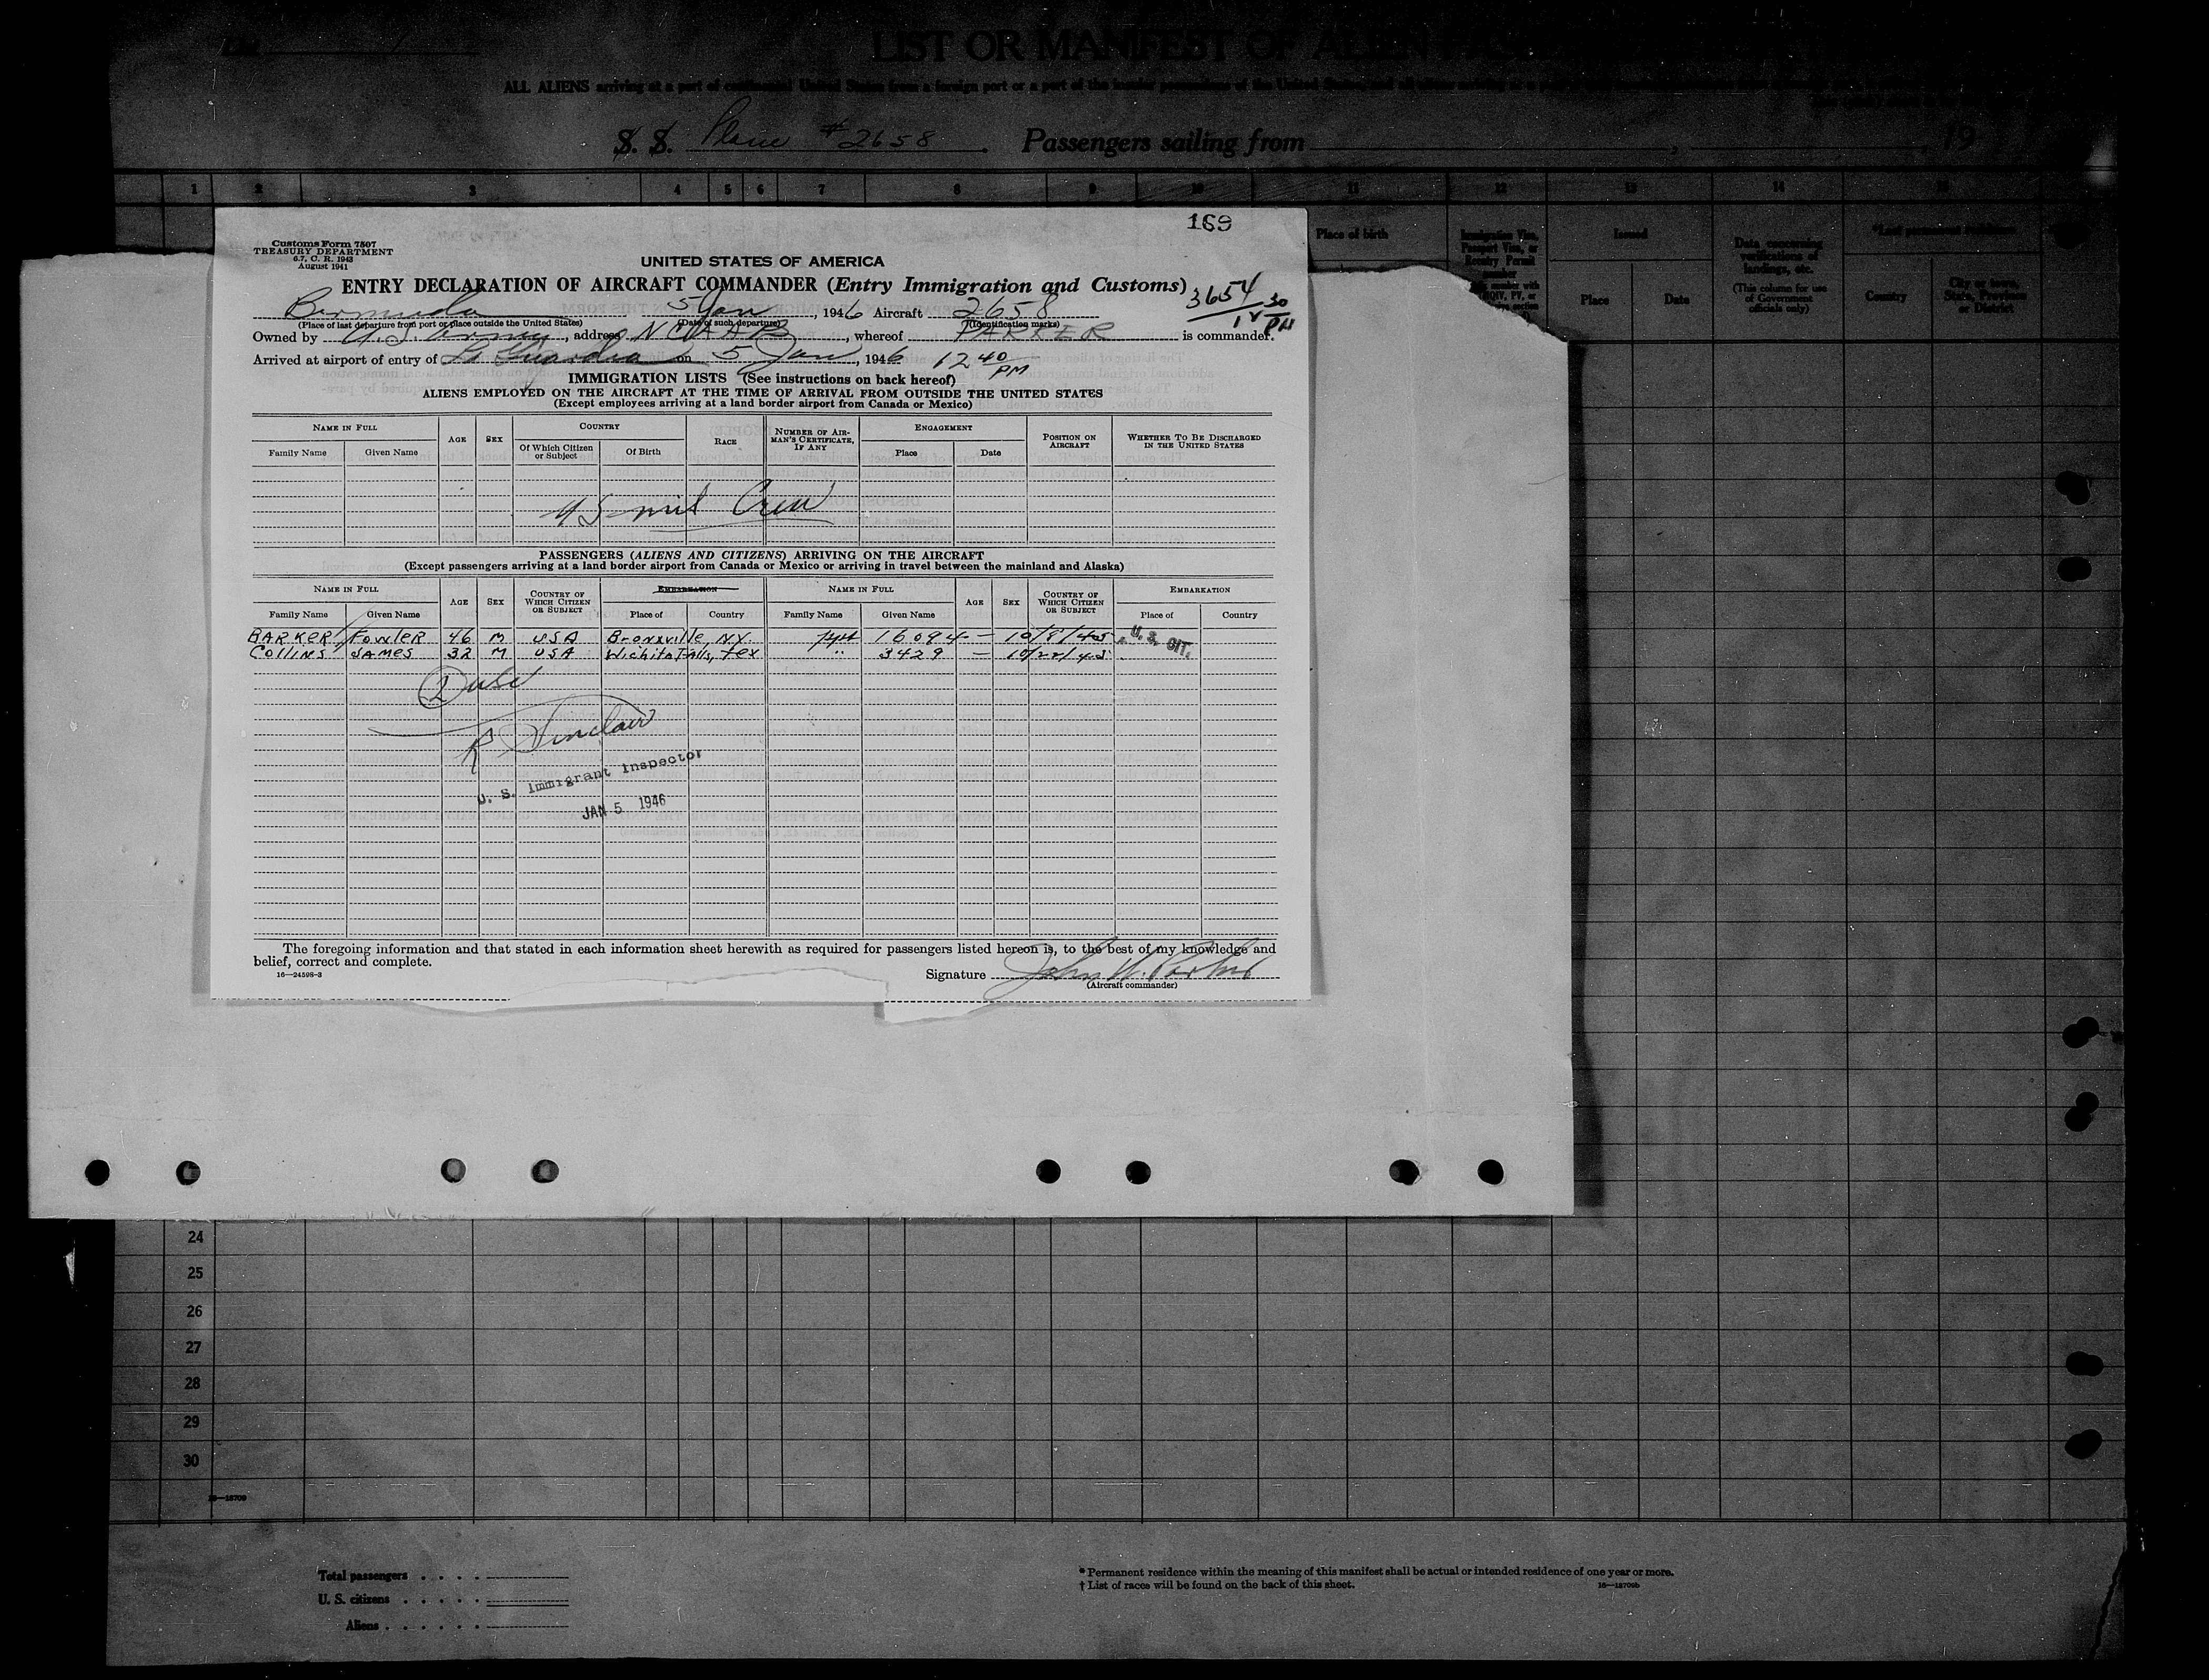 LIST OR MANIFEST OF ALIEN
ALL ALIENS arriving at a port of continental United States from a foreign port or a port of the insular possessions of the United States, and all aliens arriving at a
S. S. Plane #2658 . Passengers sailing from , , 19
1 2 3 4 5 6 7 8 9 10 11 12 13 14 15
Place of birth
Immigration Visa, Passport Visa, or Reentry Permit number
Issued
Place Date
Data concerning verifications of landings, etc.
(This column for use of Government officials only)
*Last permanent residence
Country City or town, State, Province or District
169
Customs Form 7507
TREASURY DEPARTMENT
6.7, C. R. 1943
August 1941
UNITED STATES OF AMERICA
ENTRY DECLARATION OF AIRCRAFT COMMANDER (Entry Immigration and Customs)
3654
30 PM
Bermuda 5 Jan , 1946 Aircraft 2658
(Place of last departure from port or place outside the United States) (Date of such departure) (Identification marks)
Owned by U.S. Army , address , whereof PARKER is commander.
Arrived at airport of entry of La Guardia on 5 Jan , 1946 12 40 PM
IMMIGRATION LISTS (See instructions on back hereof)
ALIENS EMPLOYED ON THE AIRCRAFT AT THE TIME OF ARRIVAL FROM OUTSIDE THE UNITED STATES
(Except employees arriving at a land border airport from Canada or Mexico)
NAME IN FULL AGE SEX COUNTRY RACE NUMBER OF AIRMAN'S CERTIFICATE, IF ANY ENGAGEMENT POSITION ON AIRCRAFT WHETHER TO BE DISCHARGED IN THE UNITED STATES
Family Name Given Name Of Which Citizen or Subject Of Birth Place Date
US mil Crew
PASSENGERS (ALIENS AND CITIZENS) ARRIVING ON THE AIRCRAFT
(Except passengers arriving at a land border airport from Canada or Mexico or arriving in travel between the mainland and Alaska)
NAME IN FULL AGE SEX COUNTRY OF WHICH CITIZEN OR SUBJECT EMBARKATION NAME IN FULL AGE SEX COUNTRY OF WHICH CITIZEN OR SUBJECT EMBARKATION
Family Name Given Name Place of Country Family Name Given Name Place of Country
BARKER Fowler 46 M USA Bronxville, NY. 16094 — 10/8/45 U. S. CIT.
Collins JAMES 32 M USA Wichita Falls, Tex " 3429 — 10/22/45
2 USC
R Sinclair
U. S. Immigrant Inspector
JAN 5 1946
The foregoing information and that stated in each information sheet herewith as required for passengers listed hereon is, to the best of my knowledge and
belief, correct and complete.
16—24598-3
Signature John W. Parker
(Aircraft commander)
24
25
26
27
28
29
30
16—18709
Total passengers . . . .
U. S. citizens . . . . .
Aliens . . . . . .
* Permanent residence within the meaning of this manifest shall be actual or intended residence of one year or more.
† List of races will be found on the back of this sheet.
16—18709b